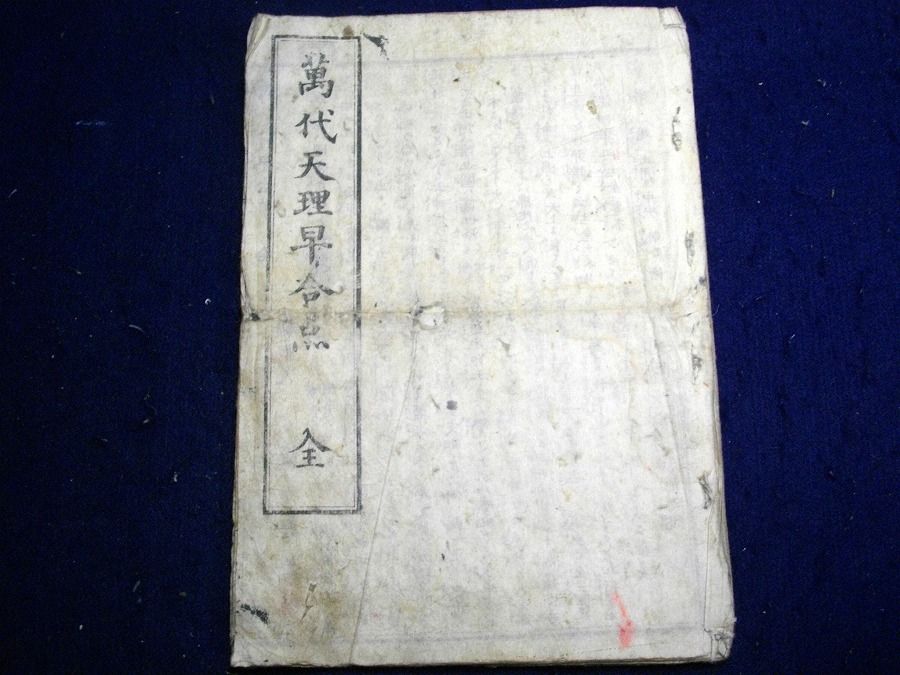 萬代天理早合点 全